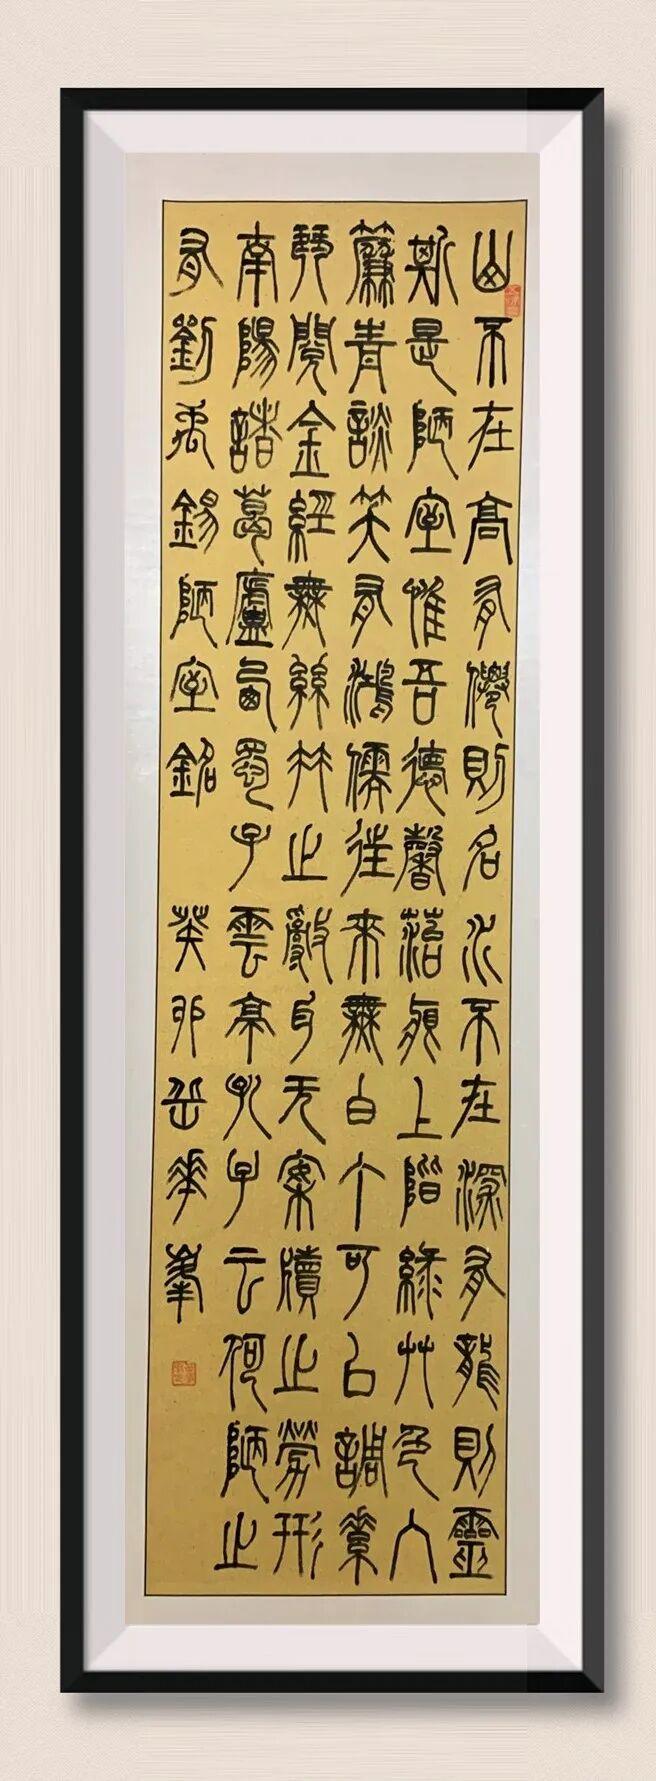 山不在高有僊則名水不在深有龍則靈
斯是陋室惟吾德馨菭痕上階綠艸色入
簾青談笑有鴻儒往來無白丁可以調素
琴閱金經無絲竹之亂耳无案牘之勞形
南陽諸葛廬西蜀子雲亭孔子云何陋之
有劉禹錫陋室銘 癸卯岳華峯